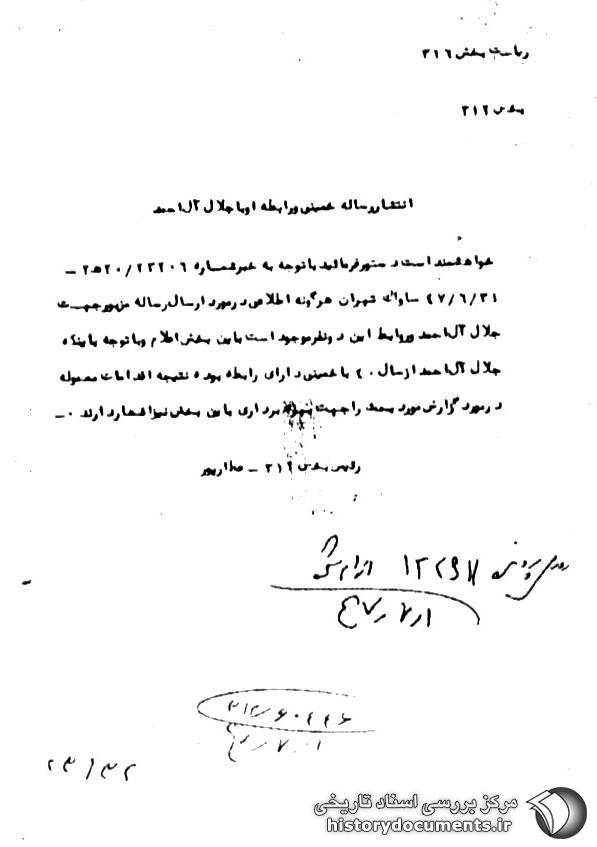 ریاست بخش ۳۱۶
بخش ۳۱۲
انتشار رساله خمینی و رابطه او با جلال آل‌احمد
خواهشمند است دستور فرمائید با توجه به خبر شماره ۲۳۲۰۶/۲۰ه۲ –
۴۷/۶/۳۱ ساواک تهران هرگونه اطلاعی در مورد ارسال رساله مزبور جهت
جلال آل‌احمد و روابط این دو نفر موجود است باین بخش اعلام و با توجه باینکه
جلال آل‌احمد از سال ۴۰ با خمینی دارای رابطه بوده نتیجه اقدامات معموله
در مورد گزارش مورد بحث را جهت بهره برداری باین بخش نیز اشعار دارند ۰–
رئیس بخش ۳۱۲ – عطارپور
۴۷/۷/۱
۳۱۲/۶۰۴۴۶
۲۳/۳۲
مرکز بررسی اسناد تاریخی
historydocuments.ir